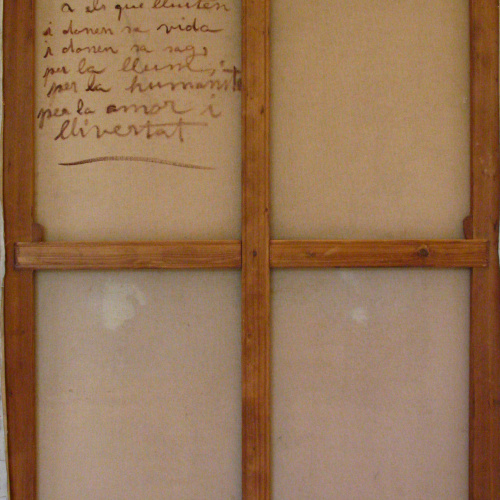 a els que lluiten
i donen sa vida
i donen sa sag,
per la llum, i
per la humanitat
per la amor i
llivertat